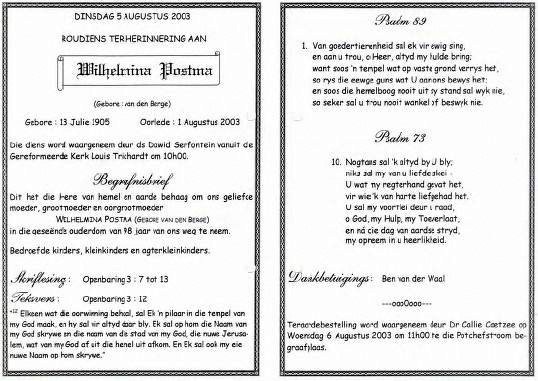 DINSDAG 5 AUGUSTUS 2003
ROUDIENS TER HERINNERING AAN
Wilhelmina Postma
(Gebore : van den Berge)
Gebore : 13 Julie 1905 Oorlede : 1 Augustus 2003
Die diens word waargeneem deur ds Dawid Serfontein vanuit de
Gereformeerde Kerk Louis Trichardt om 10h00.
Begrafnisbrief
Dit het die Here van hemel en aarde behaag om ons geliefde
moeder, grootmoeder en oorgrootmoeder
WILHELMINA POSTMA (GEBORE VAN DEN BERGE)
in die geseënde ouderdom van 98 jaar van ons weg te neem.
Bedroefde kinders, kleinkinders en agterkleinkinders.
Skriflesing : Openbaring 3 : 7 tot 13
Teksvers : Openbaring 3 : 12
"12 Elkeen wat die oorwinning behaal, sal Ek 'n pilaar in die tempel van
my God maak, en hy sal vir altyd daar bly. Ek sal op hom die Naam van
my God skrywe en die naam van die stad van my God, die nuwe Jerusa-
lem, wat van my God af uit die hemel uit afkom. En Ek sal ook my eie
nuwe Naam op hom skrywe."
Psalm 89
1. Van goedertierenheid sal ek vir ewig sing,
en aan U trou, o Heer, altyd my hulde bring;
want soos 'n tempel wat op vaste grond verrys het,
so rys die eewge guns wat U aan ons bewys het;
en soos die hemelboog nooit uit sy stand sal wyk nie,
so seker sal U trou nooit wankel of beswyk nie.
Psalm 73
10. Nogtans sal 'k altyd by U bly;
niks sal my van U liefde skei -
U wat my regterhand gevat het,
vir wie 'k van harte liefgehad het.
U sal my voortlei deur U raad,
o God, my Hulp, my Toeverlaat,
en ná die dag van aardse stryd,
my opneem in U heerlikheid.
Dankbetuigings : Ben van der Waal
---ooo0ooo---
Teraardebestelling word waargeneem deur Dr Callie Coetzee op
Woensdag 6 Augustus 2003 om 11h00 te die Potchefstroom be-
graafplaas.